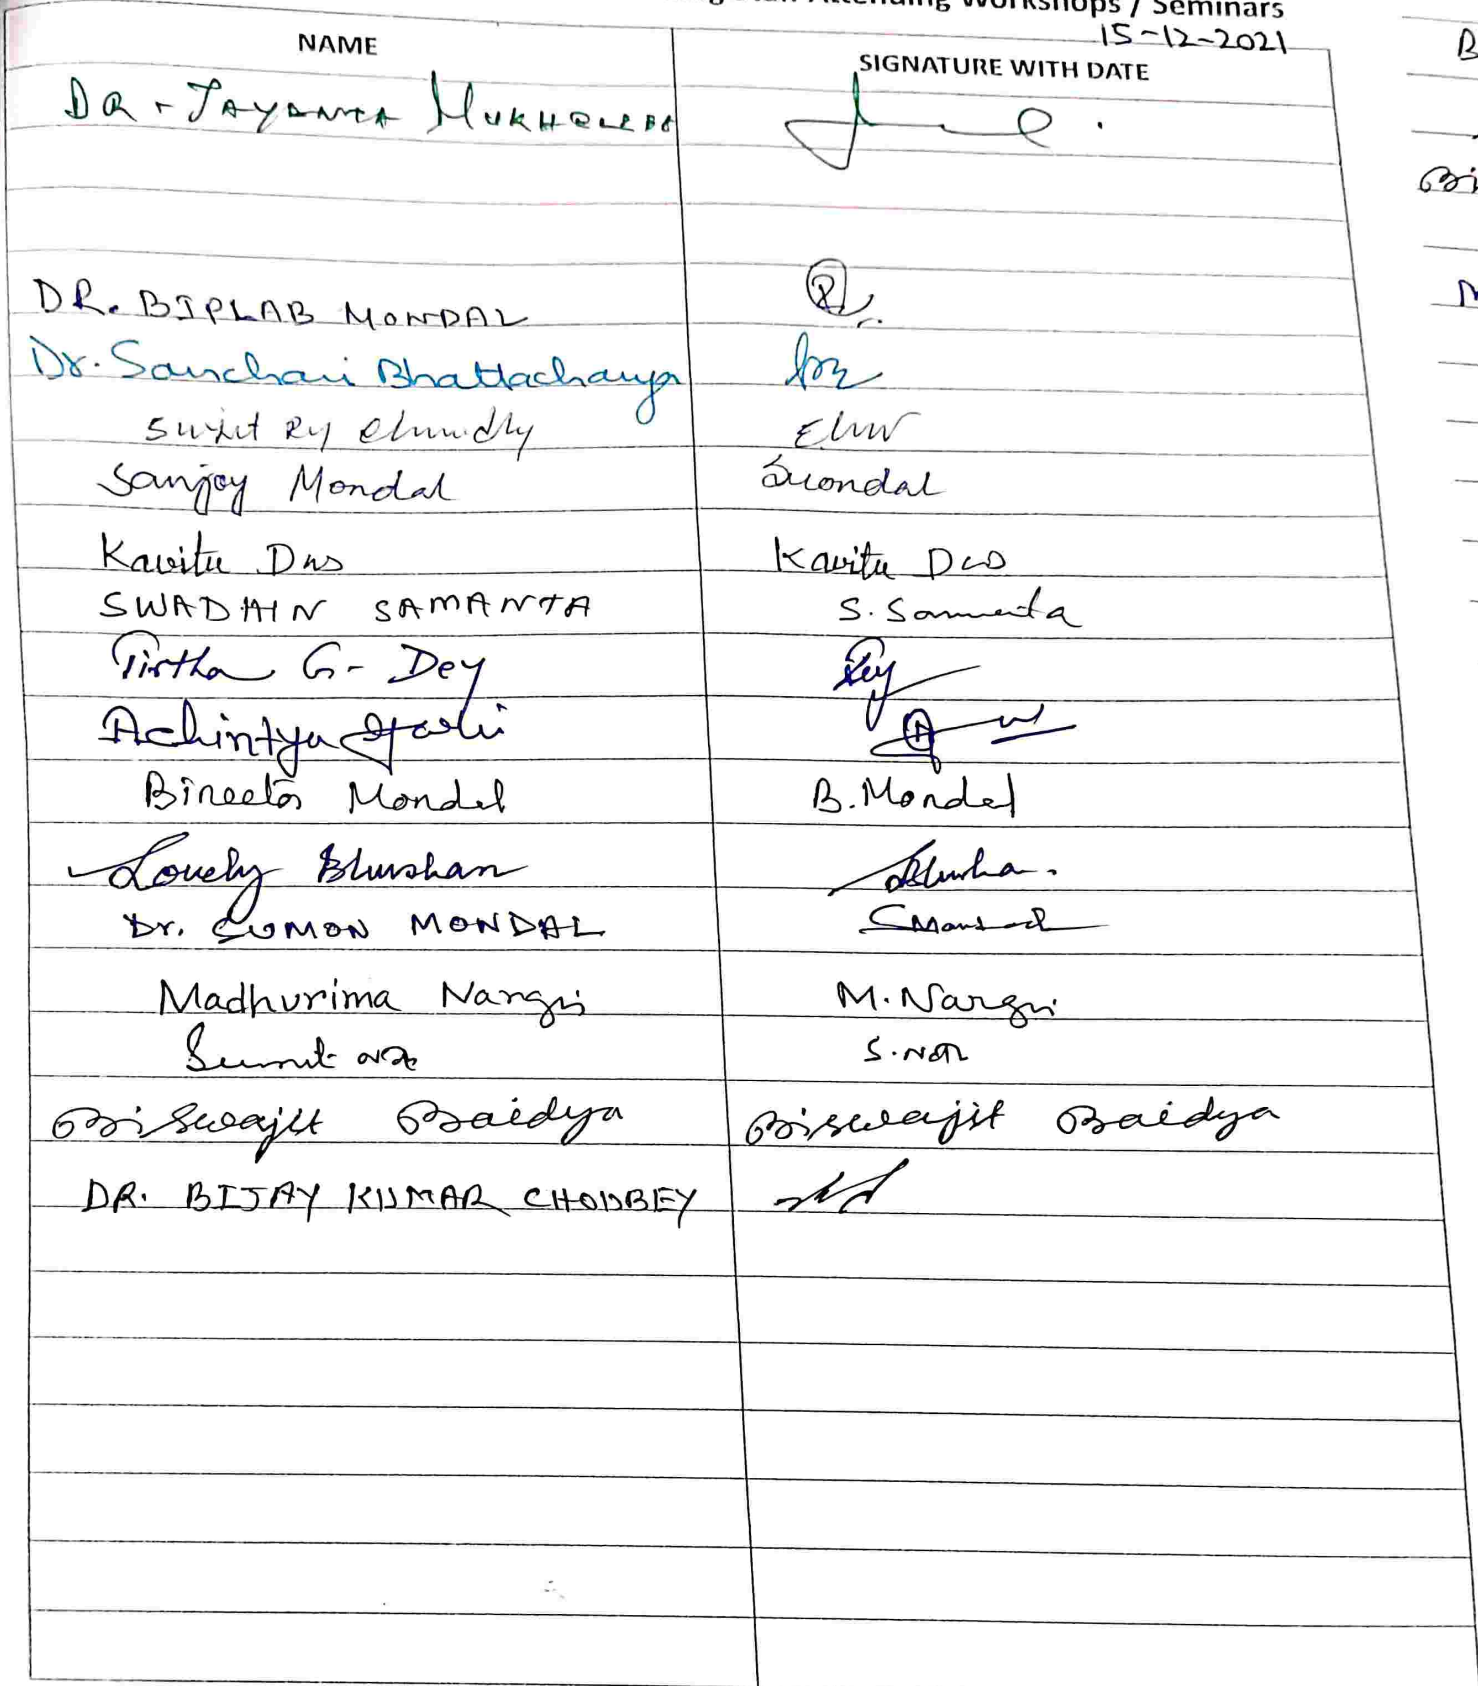 Attending Workshops / Seminars
15-12-2021
NAME SIGNATURE WITH DATE
DR. JAYANTA MUKHERJEE
DR. BIPLAB MONDAL
Dr. Sanchari Bhattacharya
Sanjoy Mondal Smondal
Kavita Das Kavita Das
SWADHIN SAMANTA S. Samanta
Tirtha G. Dey Dey
Achintya
Mondal B. Mondal
Lovely Bhushan
Dr. SUMON MONDAL SMondal
Madhurima Nangri M. Nangri
Sumit
Biswajit Baidya Biswajit Baidya
DR. BIJAY KUMAR CHOUBEY